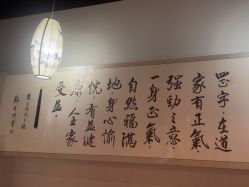 罡字，在道
家有正氣、
強勁之意，
一身正氣，
自然福滿
地，身心愉
悅，有益健
康，全家
受益。